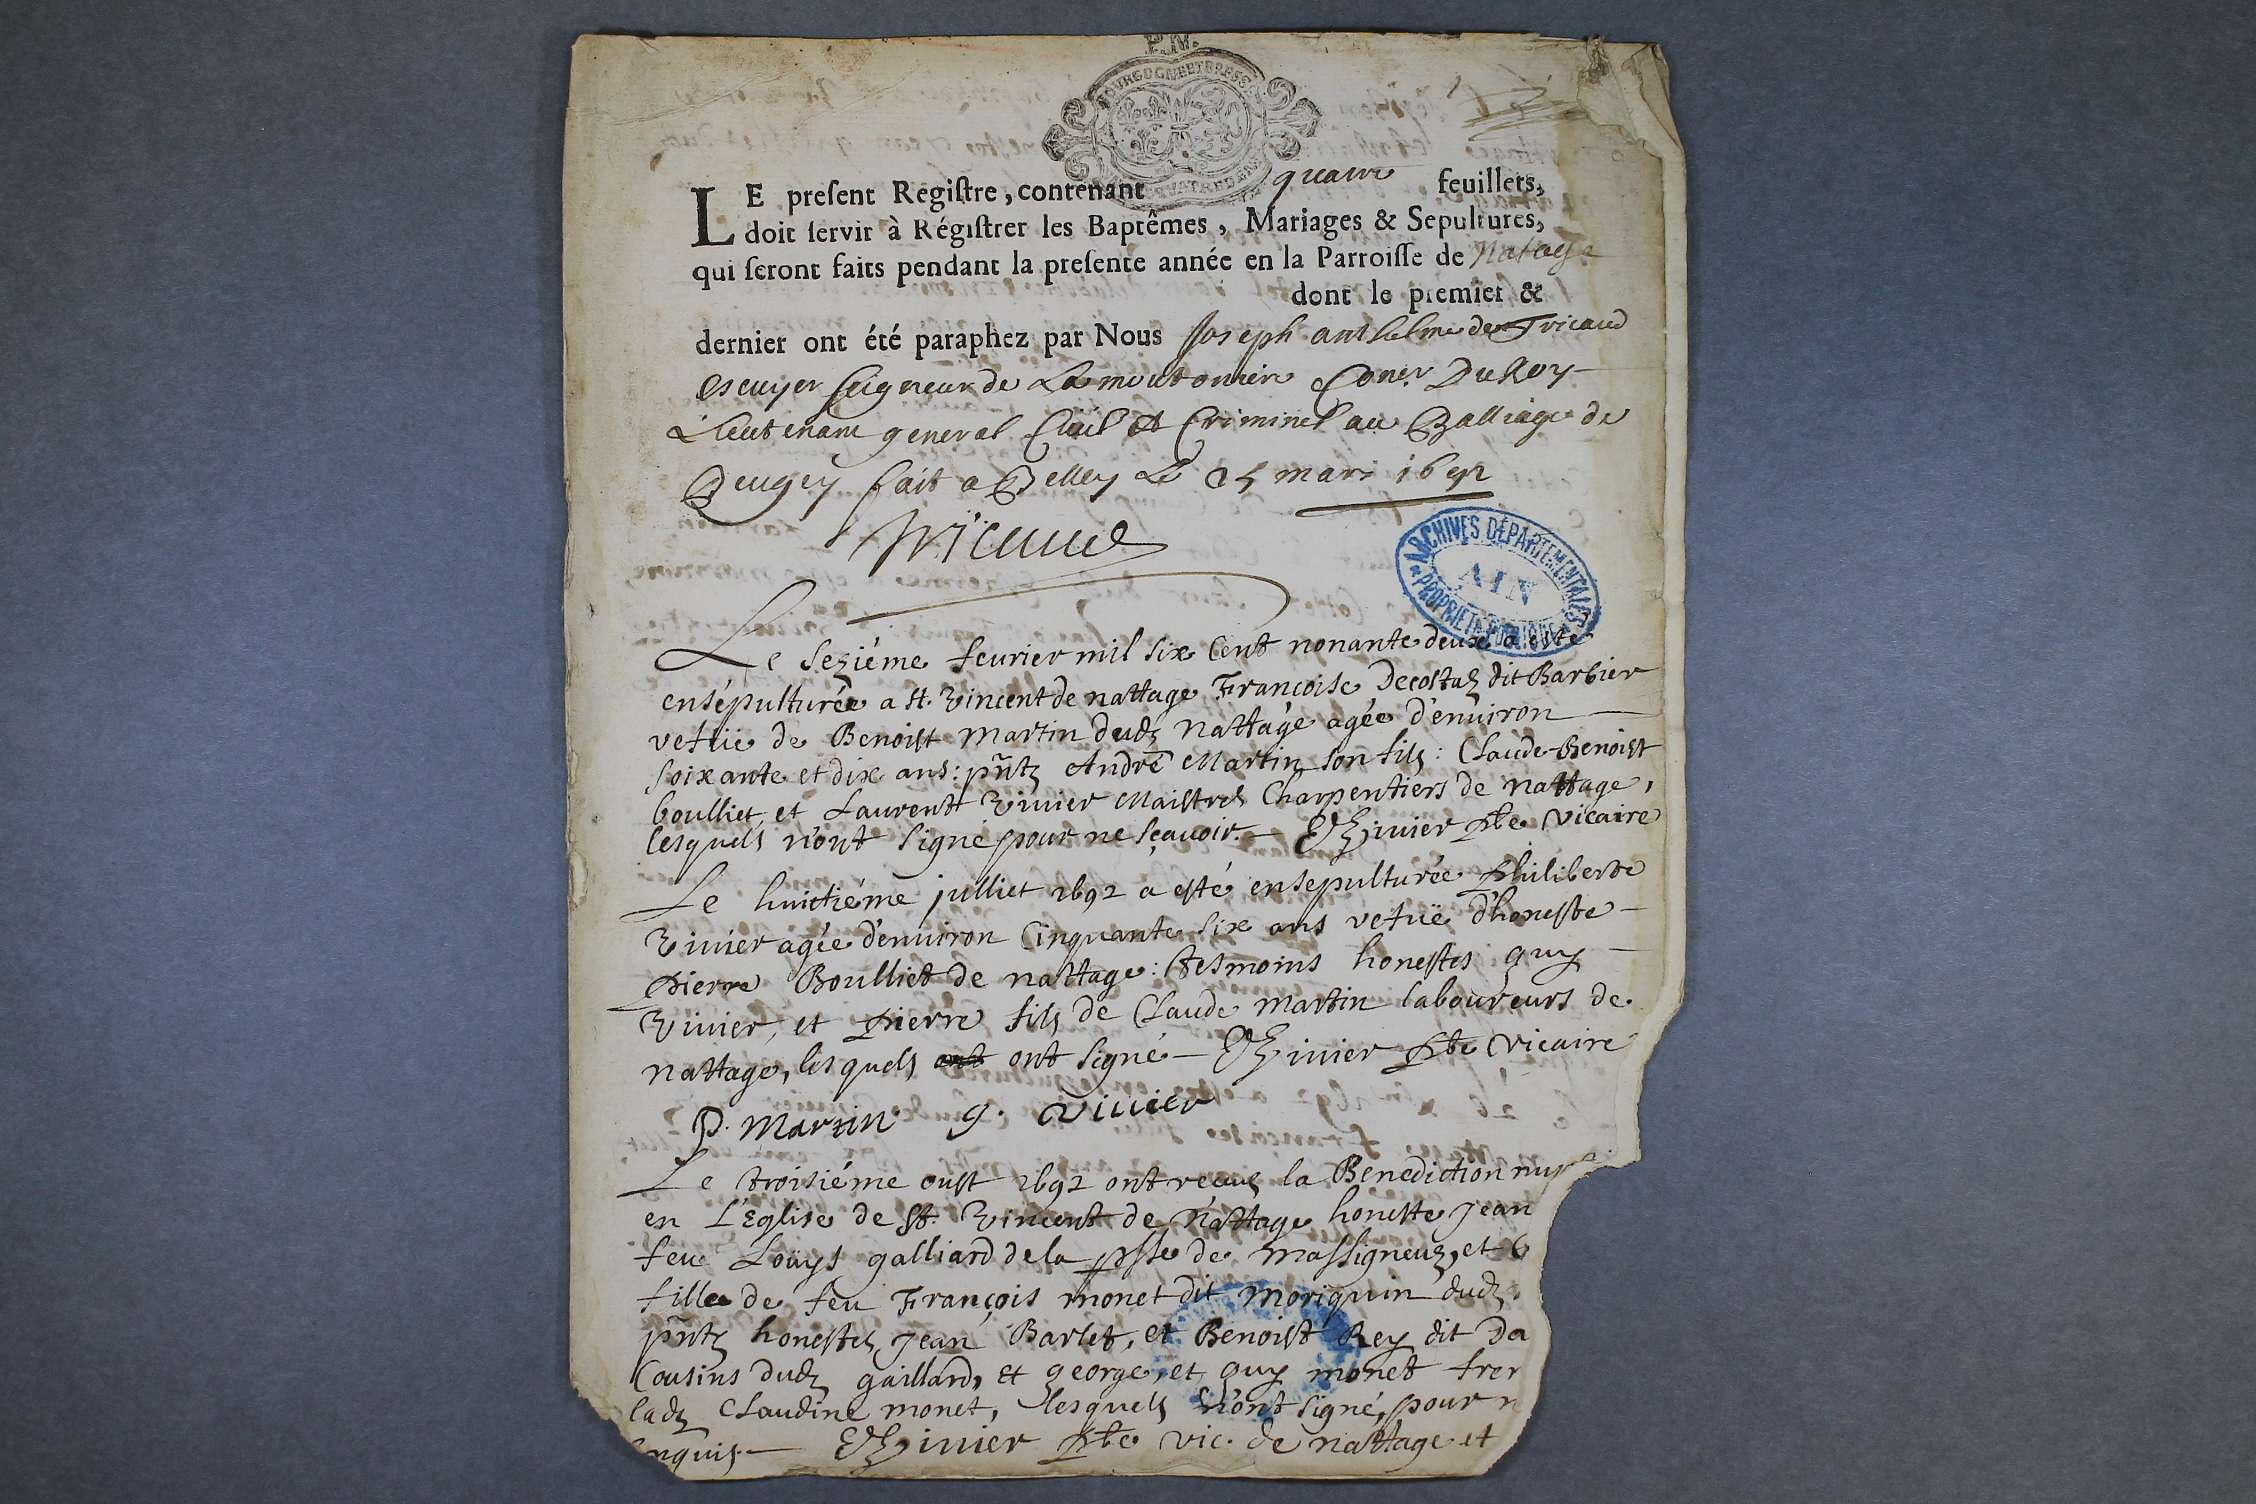 P.N.
BOURGOGNE ET BRESSE
LE present Registre, contenant quattre feuillets,
doit servir à Régistrer les Baptêmes, Mariages & Sepultures,
qui seront faits pendant la presente année en la Parroisse de Natage
dont le premier &
dernier ont été paraphez par Nous Joseph anthelme de Tricaud
escuyer seigneur de La moutonnier Coner. Du Roy
Lieutenant general Ciuil et Criminel au Balliage de
Beugey fait a Belley le 25 mars 1692
Tricaud
ARCHIVES DÉPARTEMENTALES
AIN
PROPRIÉTÉ PUBLIQUE
Le seziéme feurier mil six cent nonante deux a esté
ensépulturée a st. Vincent de nattage Françoise Decostaz dit Barbier
vefuë de Benoist Martin dudz Nattage agée d'enuiron
soixante et dix ans: pntz André Martin son fils: Claude-Benoist
boulliet, et Laurent Viuier Maistres Charpentiers de nattage,
lesquels n'ont signé pour ne sçauoir. Viuier pbre vicaire
Le huictiéme julliet 1692 a esté ensepulturée Philiberte
Viuier agée d'enuiron Cinquante six ans vefuë d'honeste
pierre Boulliet de nattage: tesmoins honestes guy
Viuier, et pierre fils de Claude Martin laboureurs de
nattage, lesquels ont ont signé Viuier pbre vicaire
P. Martin g. viuier
Le troisiéme oust 1692 ont receus la Benediction nup
en L'Eglise de st. Vincent de Nattage honeste Jean
feu Loüys galliard de la psse de Massigneuz, et
fille de feu François monet dit Moriquin dudz.
pntz honestes Jean Barlet, et Benoist Rey dit Da
Cousins dudz gaillard, et george, et guy monet frer
ladz Claudine monet, lesquels n'ont signé, pour n
enquis. Viuier pbre vic. de nattage et